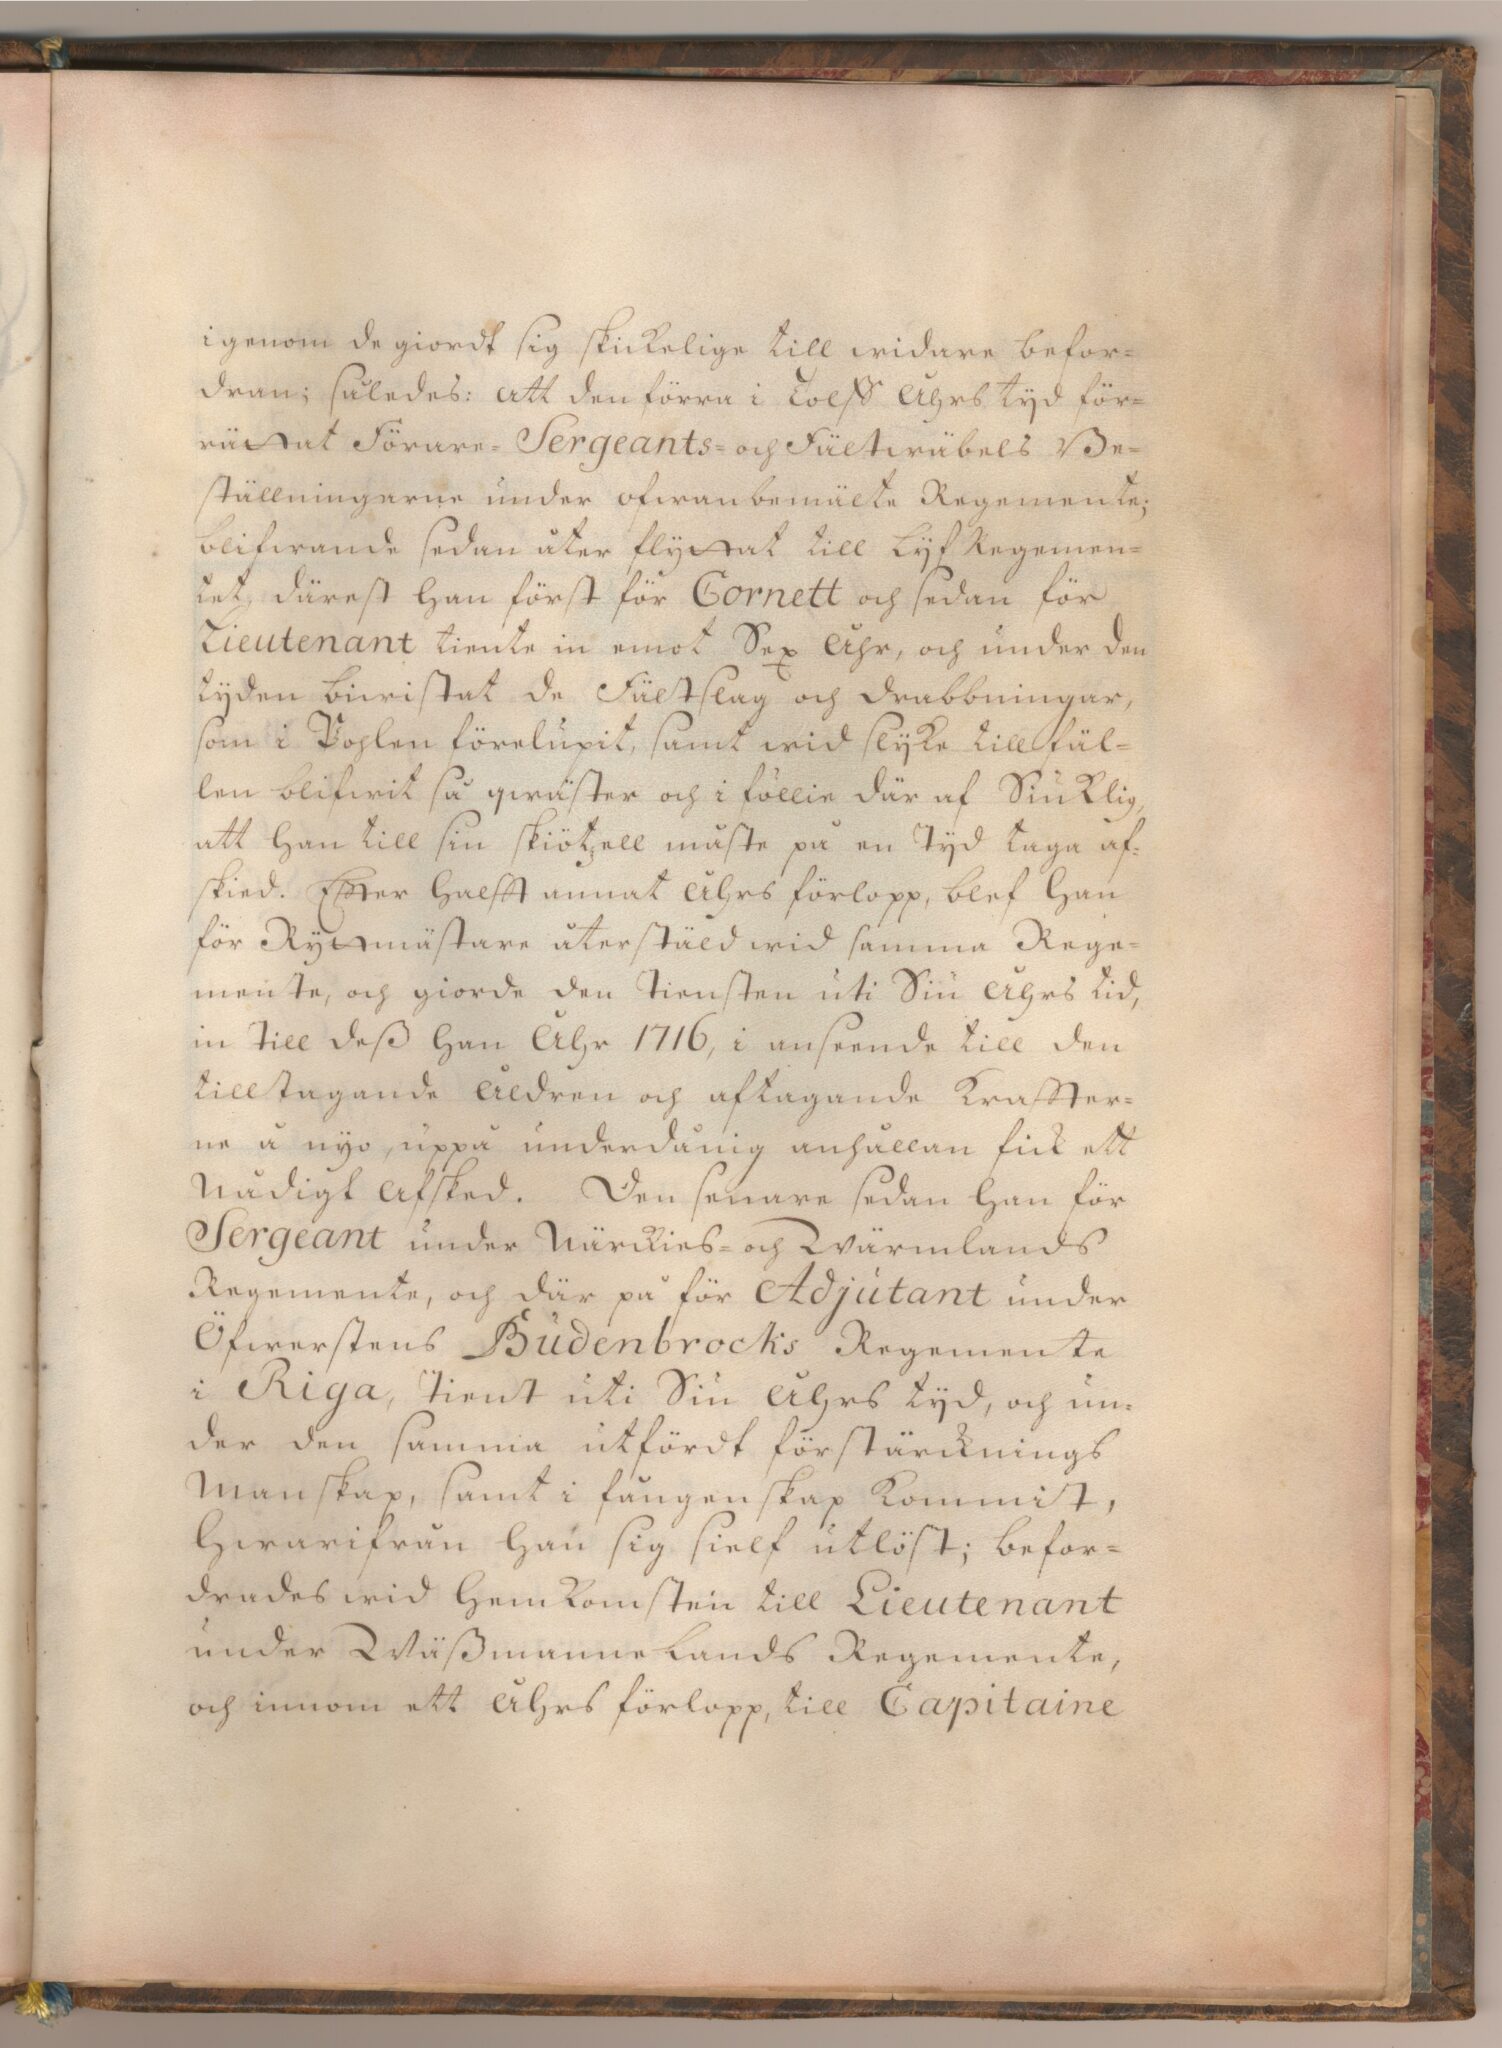 igenom de giordt sig skickelige till widare befor=
dran; således: att den förra i Tolff Ahrs tyd för=
rättat Förare= Sergeants= och Fältwäbels Be=
ställningarne under ofwanbemälte Regemente;
blifwande sedan åter flyttat till Lyf Regemen=
tet, därest han först för Cornett och sedan för
Lieutenant tiente in emot Sex Ahr, och under den
tyden biwistat de Fältslag och drabbningar,
som i Pohlen förelupit, samt wid slyke tillfäl=
len blifwit så qwäster och i föllie där af Siuklig,
att han till sin skiötzell måste på en Tyd taga af=
skied. Effter halfft annat Ahrs förlopp, blef han
för Ryttmästare återstäld wid samma Rege=
mente, och giorde den Tiensten uti Siu Ahrs tid,
in till dess han Ahr 1716, i anseende till den
tilltagande Åldren och aftagande Kraffter=
ne å nyo, uppå underdånig anhållan fick ett
Nådigt Afsked. Den senare sedan han för
Sergeant under Närckies= och Wärmlands
Regemente, och där på för Adjutant under
Öfwerstens Budenbrocks Regemente
i Riga, tient uti Siu Ahrs tyd, och un=
der den samma utfördt förstärcknings
Manskap, samt i fångenskap kommit,
hwarifrån han sig sielf utlöst; befor=
drades wid hemkomsten till Lieutenant
under Wäßmannelands Regemente,
och innom ett Ahrs förlopp, till Capitaine